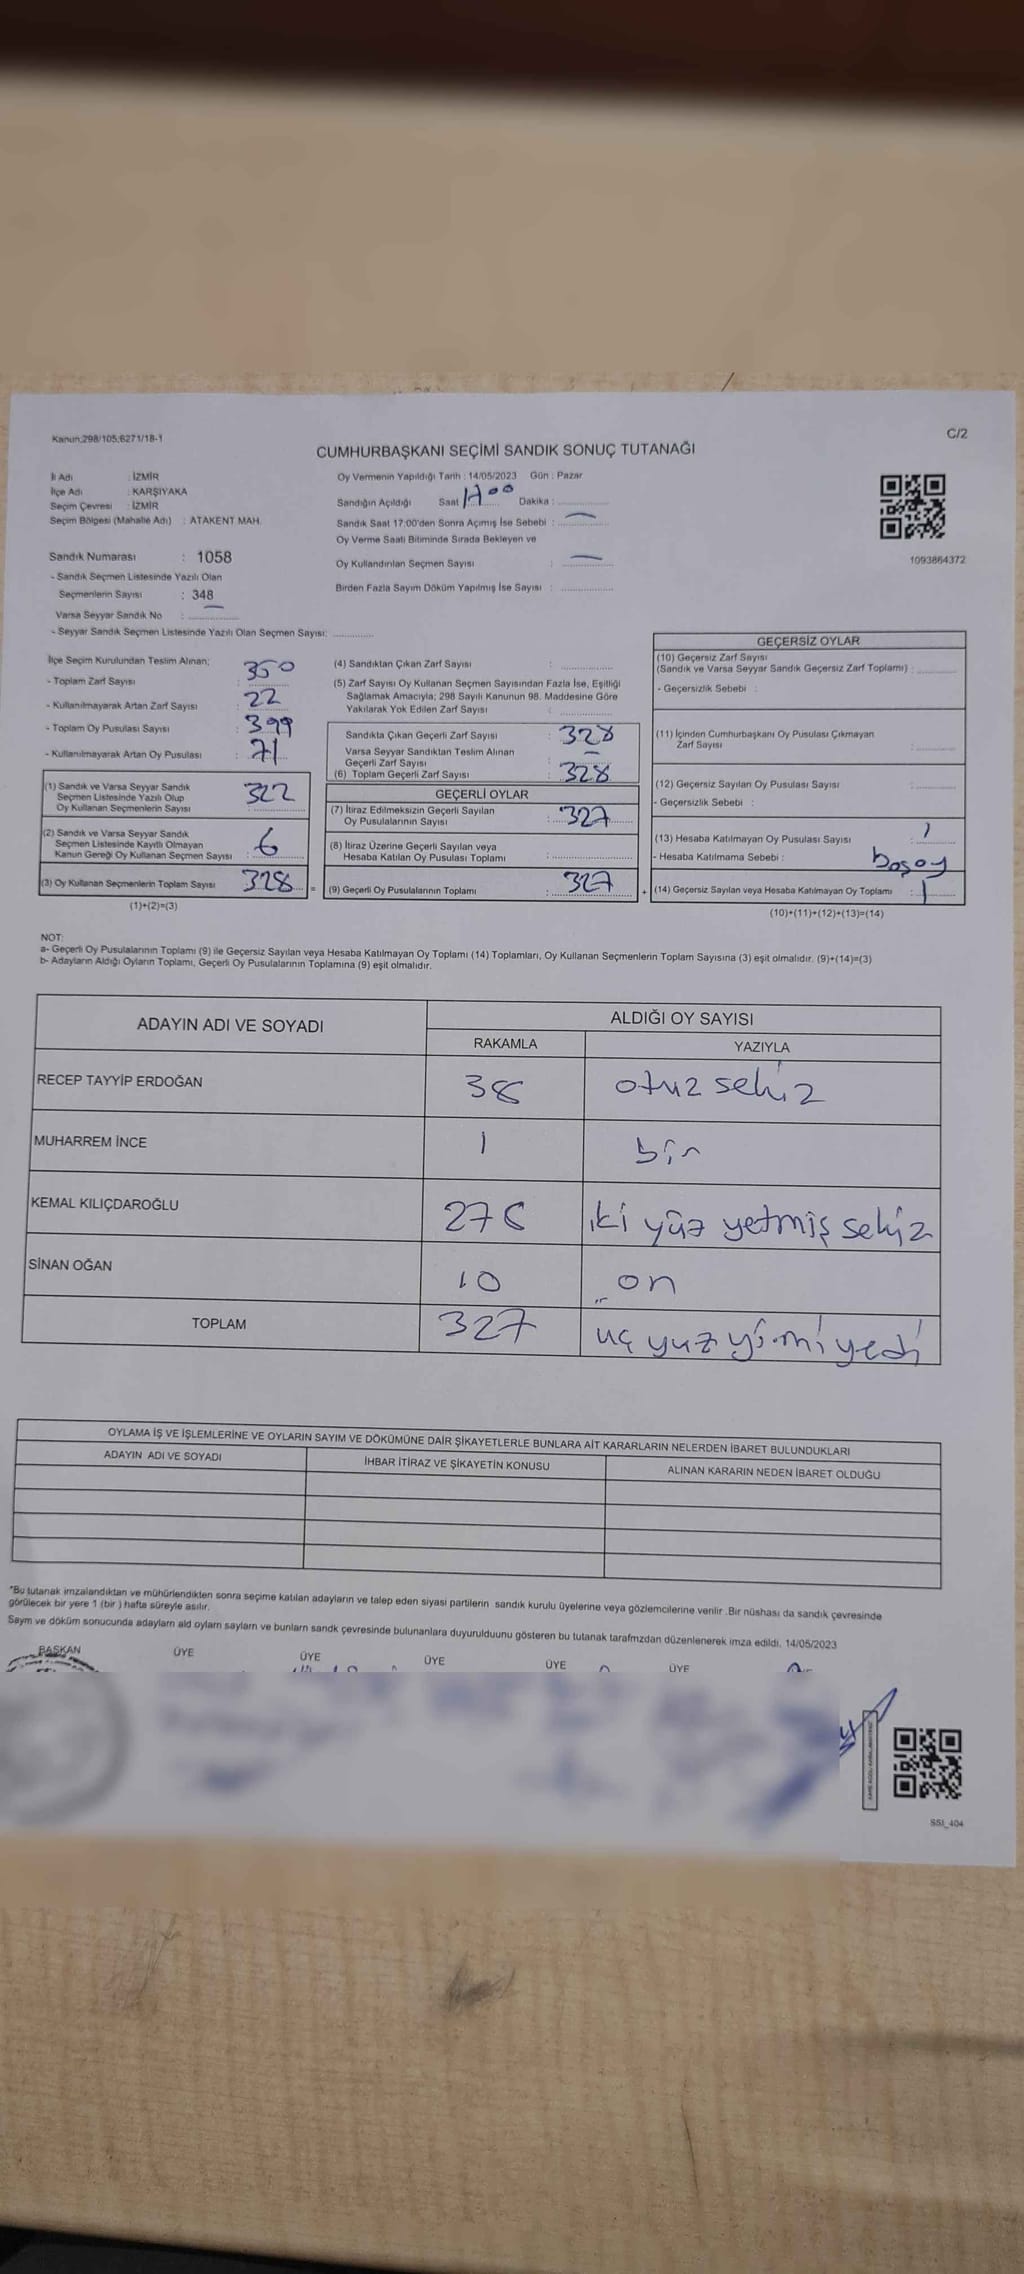 Kanun;298/105;6271/18-1
C/2
CUMHURBAŞKANI SEÇİMİ SANDIK SONUÇ TUTANAĞI
İl Adı : İZMİR
İlçe Adı : KARŞIYAKA
Seçim Çevresi : İZMİR
Seçim Bölgesi (Mahalle Adı) : ATAKENT MAH.
Sandık Numarası : 1058
- Sandık Seçmen Listesinde Yazılı Olan
Seçmenlerin Sayısı : 348
Varsa Seyyar Sandık No : —
- Seyyar Sandık Seçmen Listesinde Yazılı Olan Seçmen Sayısı:
Oy Vermenin Yapıldığı Tarih : 14/05/2023 Gün : Pazar
Sandığın Açıldığı Saat 17:00 Dakika :
Sandık Saat 17:00'den Sonra Açımış İse Sebebi : —
Oy Verme Saati Bitiminde Sırada Bekleyen ve
Oy Kullandırılan Seçmen Sayısı : —
Birden Fazla Sayım Döküm Yapılmış İse Sayısı :
1093864372
İlçe Seçim Kurulundan Teslim Alınan;
- Toplam Zarf Sayısı : 350
- Kullanılmayarak Artan Zarf Sayısı : 22
- Toplam Oy Pusulası Sayısı : 399
- Kullanılmayarak Artan Oy Pusulası : 71
(1) Sandık ve Varsa Seyyar Sandık
Seçmen Listesinde Yazılı Olup
Oy Kullanan Seçmenlerin Sayısı : 322
(2) Sandık ve Varsa Seyyar Sandık
Seçmen Listesinde Kayıtlı Olmayan
Kanun Gereği Oy Kullanan Seçmen Sayısı : 6
(3) Oy Kullanan Seçmenlerin Toplam Sayısı : 328 =
(1)+(2)=(3)
(4) Sandıktan Çıkan Zarf Sayısı :
(5) Zarf Sayısı Oy Kullanan Seçmen Sayısından Fazla İse, Eşitliği
Sağlamak Amacıyla; 298 Sayılı Kanunun 98. Maddesine Göre
Yakılarak Yok Edilen Zarf Sayısı :
Sandıkta Çıkan Geçerli Zarf Sayısı : 328
Varsa Seyyar Sandıktan Teslim Alınan
Geçerli Zarf Sayısı : —
(6) Toplam Geçerli Zarf Sayısı : 328
GEÇERLİ OYLAR
(7) İtiraz Edilmeksizin Geçerli Sayılan
Oy Pusulalarının Sayısı : 327
(8) İtiraz Üzerine Geçerli Sayılan veya
Hesaba Katılan Oy Pusulası Toplamı :
(9) Geçerli Oy Pusulalarının Toplamı : 327 +
GEÇERSİZ OYLAR
(10) Geçersiz Zarf Sayısı
(Sandık ve Varsa Seyyar Sandık Geçersiz Zarf Toplamı) :
- Geçersizlik Sebebi :
(11) İçinden Cumhurbaşkanı Oy Pusulası Çıkmayan
Zarf Sayısı :
(12) Geçersiz Sayılan Oy Pusulası Sayısı :
- Geçersizlik Sebebi :
(13) Hesaba Katılmayan Oy Pusulası Sayısı : 1
- Hesaba Katılmama Sebebi : boşoy
(14) Geçersiz Sayılan veya Hesaba Katılmayan Oy Toplamı : 1
(10)+(11)+(12)+(13)=(14)
NOT:
a- Geçerli Oy Pusulalarının Toplamı (9) ile Geçersiz Sayılan veya Hesaba Katılmayan Oy Toplamı (14) Toplamları, Oy Kullanan Seçmenlerin Toplam Sayısına (3) eşit olmalıdır. (9)+(14)=(3)
b- Adayların Aldığı Oyların Toplamı, Geçerli Oy Pusulalarının Toplamına (9) eşit olmalıdır.
ADAYIN ADI VE SOYADI
ALDIĞI OY SAYISI
RAKAMLA YAZIYLA
RECEP TAYYİP ERDOĞAN 38 otuz sekiz
MUHARREM İNCE 1 bir
KEMAL KILIÇDAROĞLU 278 iki yüz yetmiş sekiz
SİNAN OĞAN 10 on
TOPLAM 327 üç yuz yirmi yedi
OYLAMA İŞ VE İŞLEMLERİNE VE OYLARIN SAYIM VE DÖKÜMÜNE DAİR ŞİKAYETLERLE BUNLARA AİT KARARLARIN NELERDEN İBARET BULUNDUKLARI
ADAYIN ADI VE SOYADI İHBAR İTİRAZ VE ŞİKAYETİN KONUSU ALINAN KARARIN NEDEN İBARET OLDUĞU
*Bu tutanak imzalandıktan ve mühürlendikten sonra seçime katılan adayların ve talep eden siyasi partilerin sandık kurulu üyelerine veya gözlemcilerine verilir .Bir nüshası da sandık çevresinde
görülecek bir yere 1 (bir ) hafta süreyle asılır.
Saym ve döküm sonucunda adaylarn ald oylarn saylarn ve bunlarn sandk çevresinde bulunanlara duyurulduunu gösteren bu tutanak tarafmzdan düzenlenerek imza edildi. 14/05/2023
BAŞKAN ÜYE ÜYE ÜYE ÜYE ÜYE
SSI_404